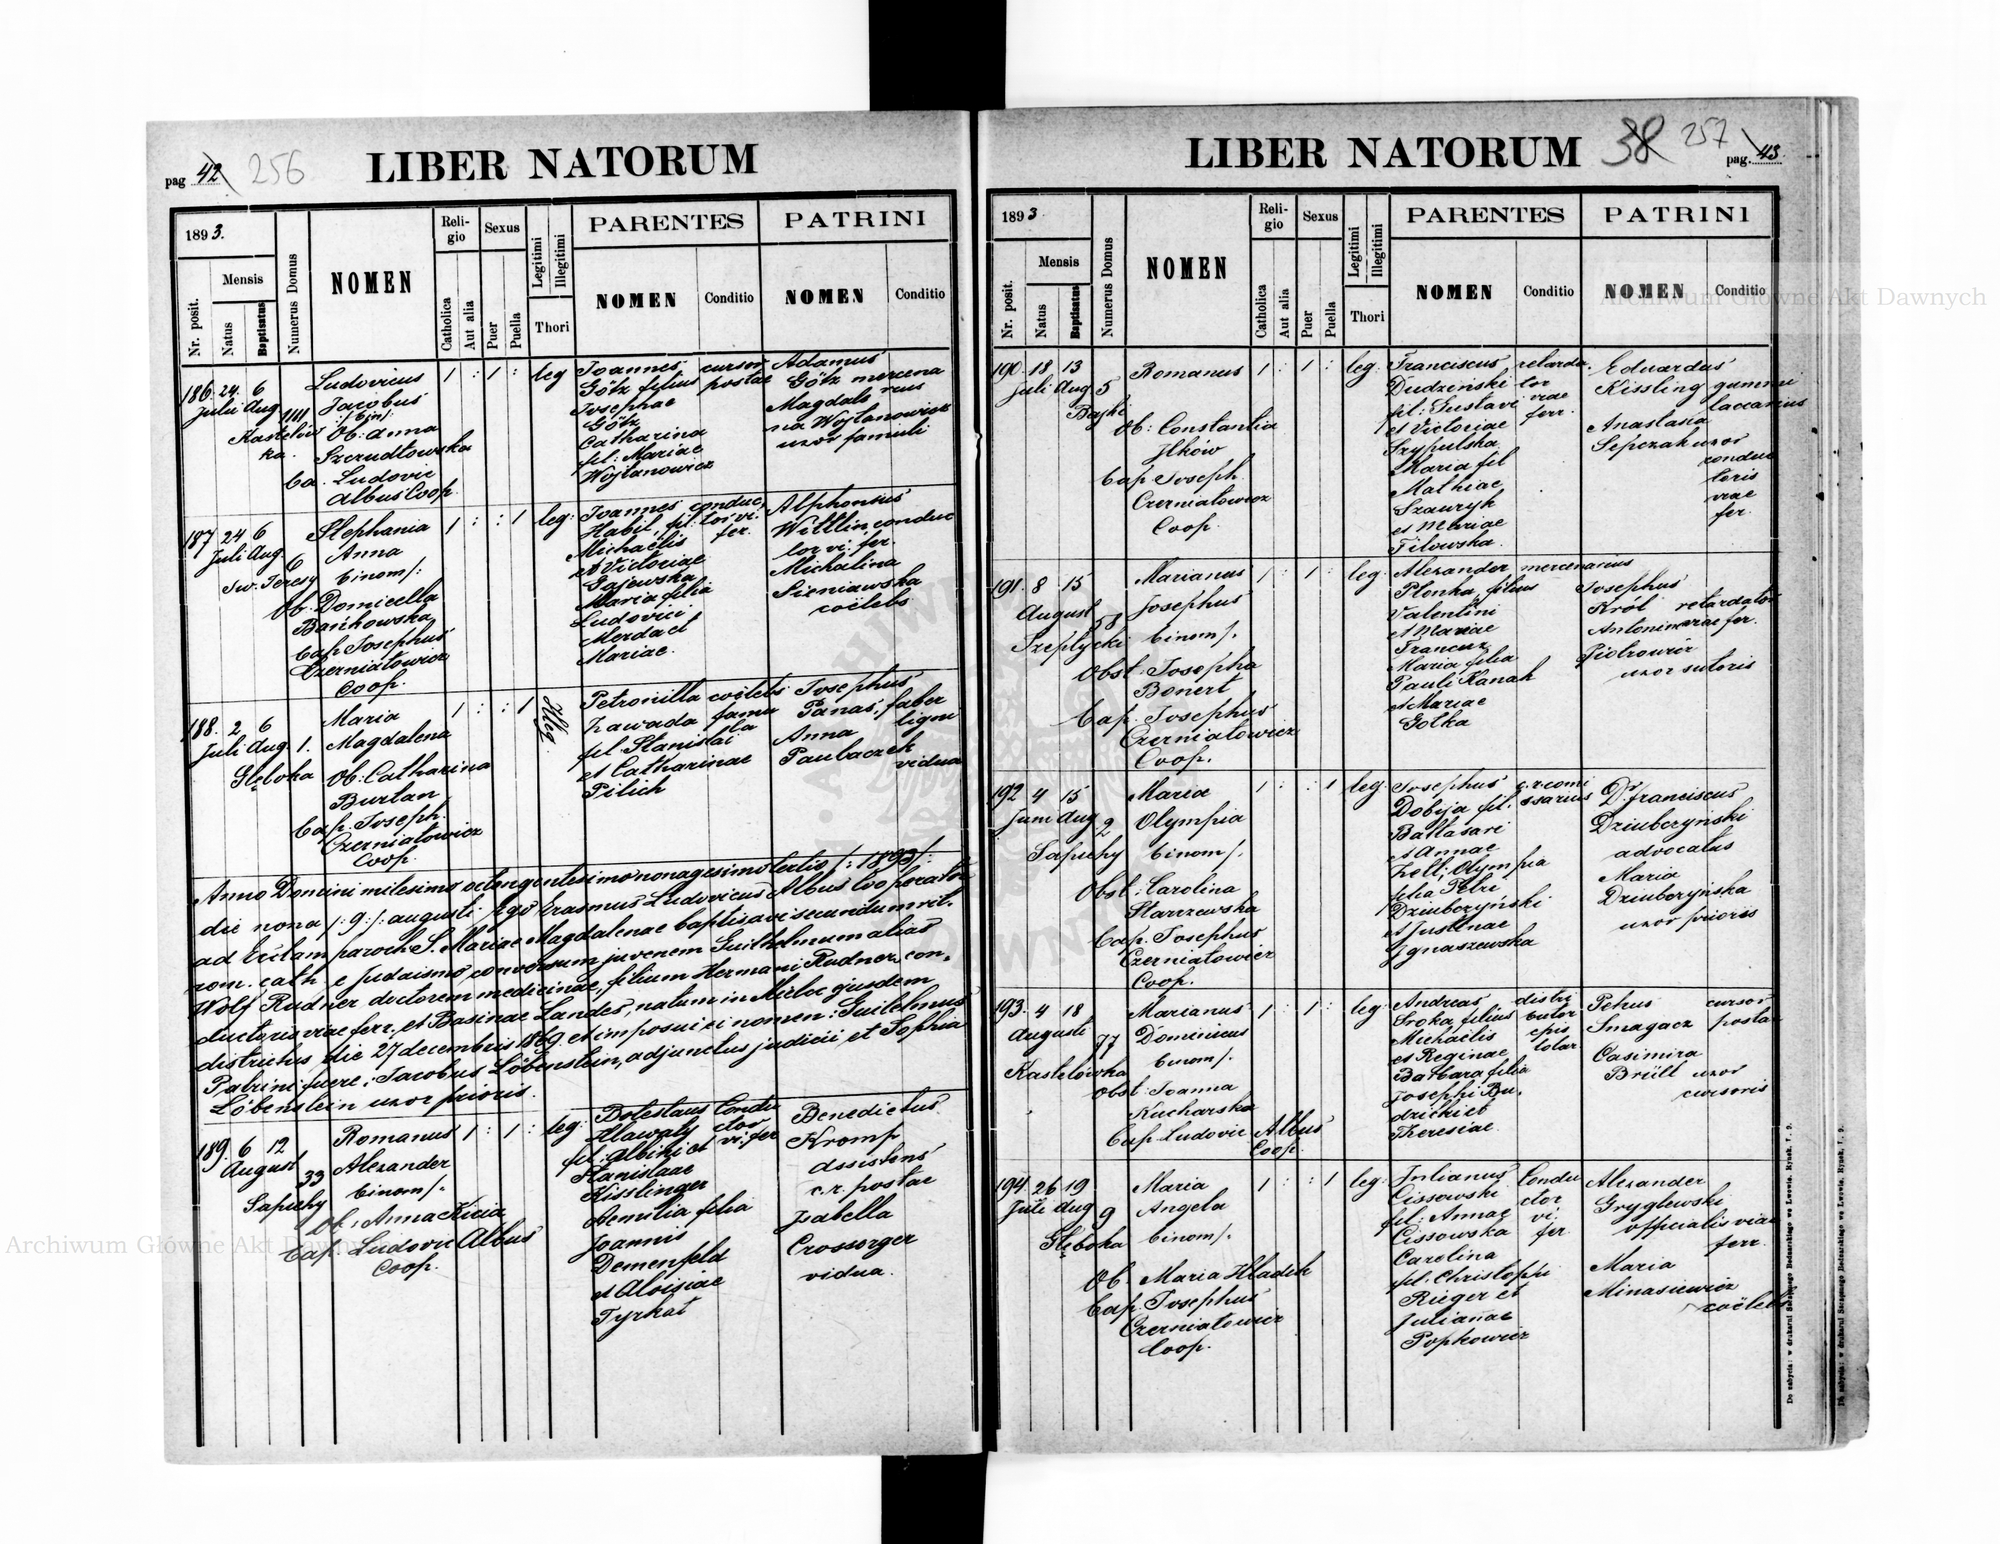 pag 42 256
LIBER NATORUM
1893.
Nr. posit.
Mensis
Natus
Baptisatus
Numerus Domus
NOMEN
Religio
Catholica
Aut alia
Sexus
Puer
Puella
Legitimi
Illegitimi
Thori
PARENTES
NOMEN
Conditio
PATRINI
NOMEN
Conditio
186. 24 6 Ludovicus 1 : 1 : leg Joannes cursor Adamus
Julii Aug Jacobus Götz filius postae Götz mercena
1111 /:bin/: Josephae rius
Kastelów Ob: Anna Götz Magdale
ka. Szerudłowska Catharina na Wojtanowicz
Ca. Ludovic fil: Mariae uxor famuli
Albus Coop. Wojtanowicz
187 24 6 Stephania 1 : : 1 leg: Joannes conduc Alphonsus
Juli Aug. Anna Habil, fil. tor vi. Wittlin, conduc
6 binom/: Michaelis fer. tor vi. fer.
Sw. Teresy et Victoriae Michalina
Ob. Domicella Gajewska Sieniawska
Bańkowska Maria filia coëlebs
Cap Josephus Ludovici
Czerniatowicz Merda et
Coop. Mariae.
188. 2 6 Maria 1 : : 1 Illeg. Petronilla coëlebs Josephus
Juli Aug. 1. Magdalena Zawada famu Panas, faber
Głęboka Ob: Catharina fil. Stanislai la ligni
Burlan et Catharinae Anna
Cap. Joseph. Pilich Paubaczek
Czerniatowicz vidua
Coop.
Anno Domini milesimo octengentesimo nonagesimo tertio /: 1893/:
die nona /: 9:/: augusti Ego Erasmus Ludovicus Albus Cooperator
ad Ecclam paroch. S. Mariae Magdalenae baptisavi secundum rit.
rom. cath. e judaismo conversum juvenem Guilhelmum alias
Wolf Rudner doctorem medicinae, filium Hermani Rudner, con-
ductoris viae ferr. et Basinae Landes, natum in Mielec ejusdem
districtus die 27 decembris 1869. et imposui ei nomen: Guilelmus
Patrini fuere: Jacobus Löbenstein, adjunctus judicii et Sophia
Löbenstein uxor prioris.
189. 6 12 Romanus 1 : 1 : leg: Boleslaus Condu Benedictus
August Alexander Hlawaty ctor Kromp
33 binom/. fil: Albini et vi. fer Assistens
Sapiehy Stanislaae c.r. postae
Ob: Anna Kicia Kisslinger Isabella
Cap. Ludovic Albus Aemilia filia Crossorger
Coop. Joannis vidua.
Demenfeld
et Aloisiae
Tyrkał
LIBER NATORUM
38 257
pag. 43
1893
Nr. posit.
Mensis
Natus
Baptisatus
Numerus Domus
NOMEN
Religio
Catholica
Aut alia
Sexus
Puer
Puella
Legitimi
Illegitimi
Thori
PARENTES
NOMEN
Conditio
PATRINI
NOMEN
Conditio
190. 18 13 Romanus 1 : 1 : leg. Franciscus retarda. Eduardus
Juli Aug 5 Dudziński tor Kissling gummi
Bajki fil: Gustavi viae laccarius
Ob: Constantia et Victoriae ferr. Anastasia
Ilków Szypulska Sepczak uxor
Cap. Joseph. Maria fil condu
Czerniatowicz Mathiae ctoris
Coop. Szauryk viae
et Mariae fer.
Tilowska.
191. 8 15 Marianus 1 : 1 : leg: Alexander mercenarius
August 58 Josephus Płonka, filius Josephus
Szeptycki binom/. Valentini Król retardator
Obst: Josepha et Mariae Antonina viae fer.
Bonert Francuz Piotrowicz
Cap. Josephus Maria filia uxor sutoris
Czerniatowicz Pauli Kanak
Coop. et Mariae
Gołka
192 4 15 Maria 1 : : 1 leg. Josephus c.r. comi Dr. franciscus
Juni Aug 2 Olympia Dobija fil. ssarius Dziuberzynski
Sapiehy binom/. Baltasari advocatus
Obst: Carolina et Annae Maria
Starczewska Zell; Olympia Dziuberzyńska
Cap. Josephus filia Petri uxor prioris
Czerniatowicz Dziuberzyński
Coop. et Justinae
Ignaszewska
193. 4 18 Marianus 1 : 1 : leg: Andreas distri Petrus cursor
Augusti 77 Dominicus Sroka filius butor Smagacz postae
Kastelówka binom/. Michaelis epis Casimira
Obst: Joanna et Reginae tolar Brüll uxor
Kucharska Barbara filia cursoris
Cap Ludovic Albus Josephi Bu-
Coop. dzicki et
Theresiae.
194 26 19 Maria 1 : : 1 leg: Julianus Condu Alexander
Juli Aug 9 Angela Cissowski ctor Gryglewski
Głęboka binom/. fil: Annae vi. officialis viae
Ob. Maria Hladik Cissowska fer. ferr.
Cap. Josephus Carolina Maria
Czerniatowicz fil. Christophi Minasiewicz
Coop. Rieger et coëlebs
Julianae
Popkowicz
Do nabycia: w drukarni Szczęsnego Bednarskiego we Lwowie, Rynek, l. 9.
Archiwum Główne Akt Dawnych
Archiwum Główne Akt Dawnych